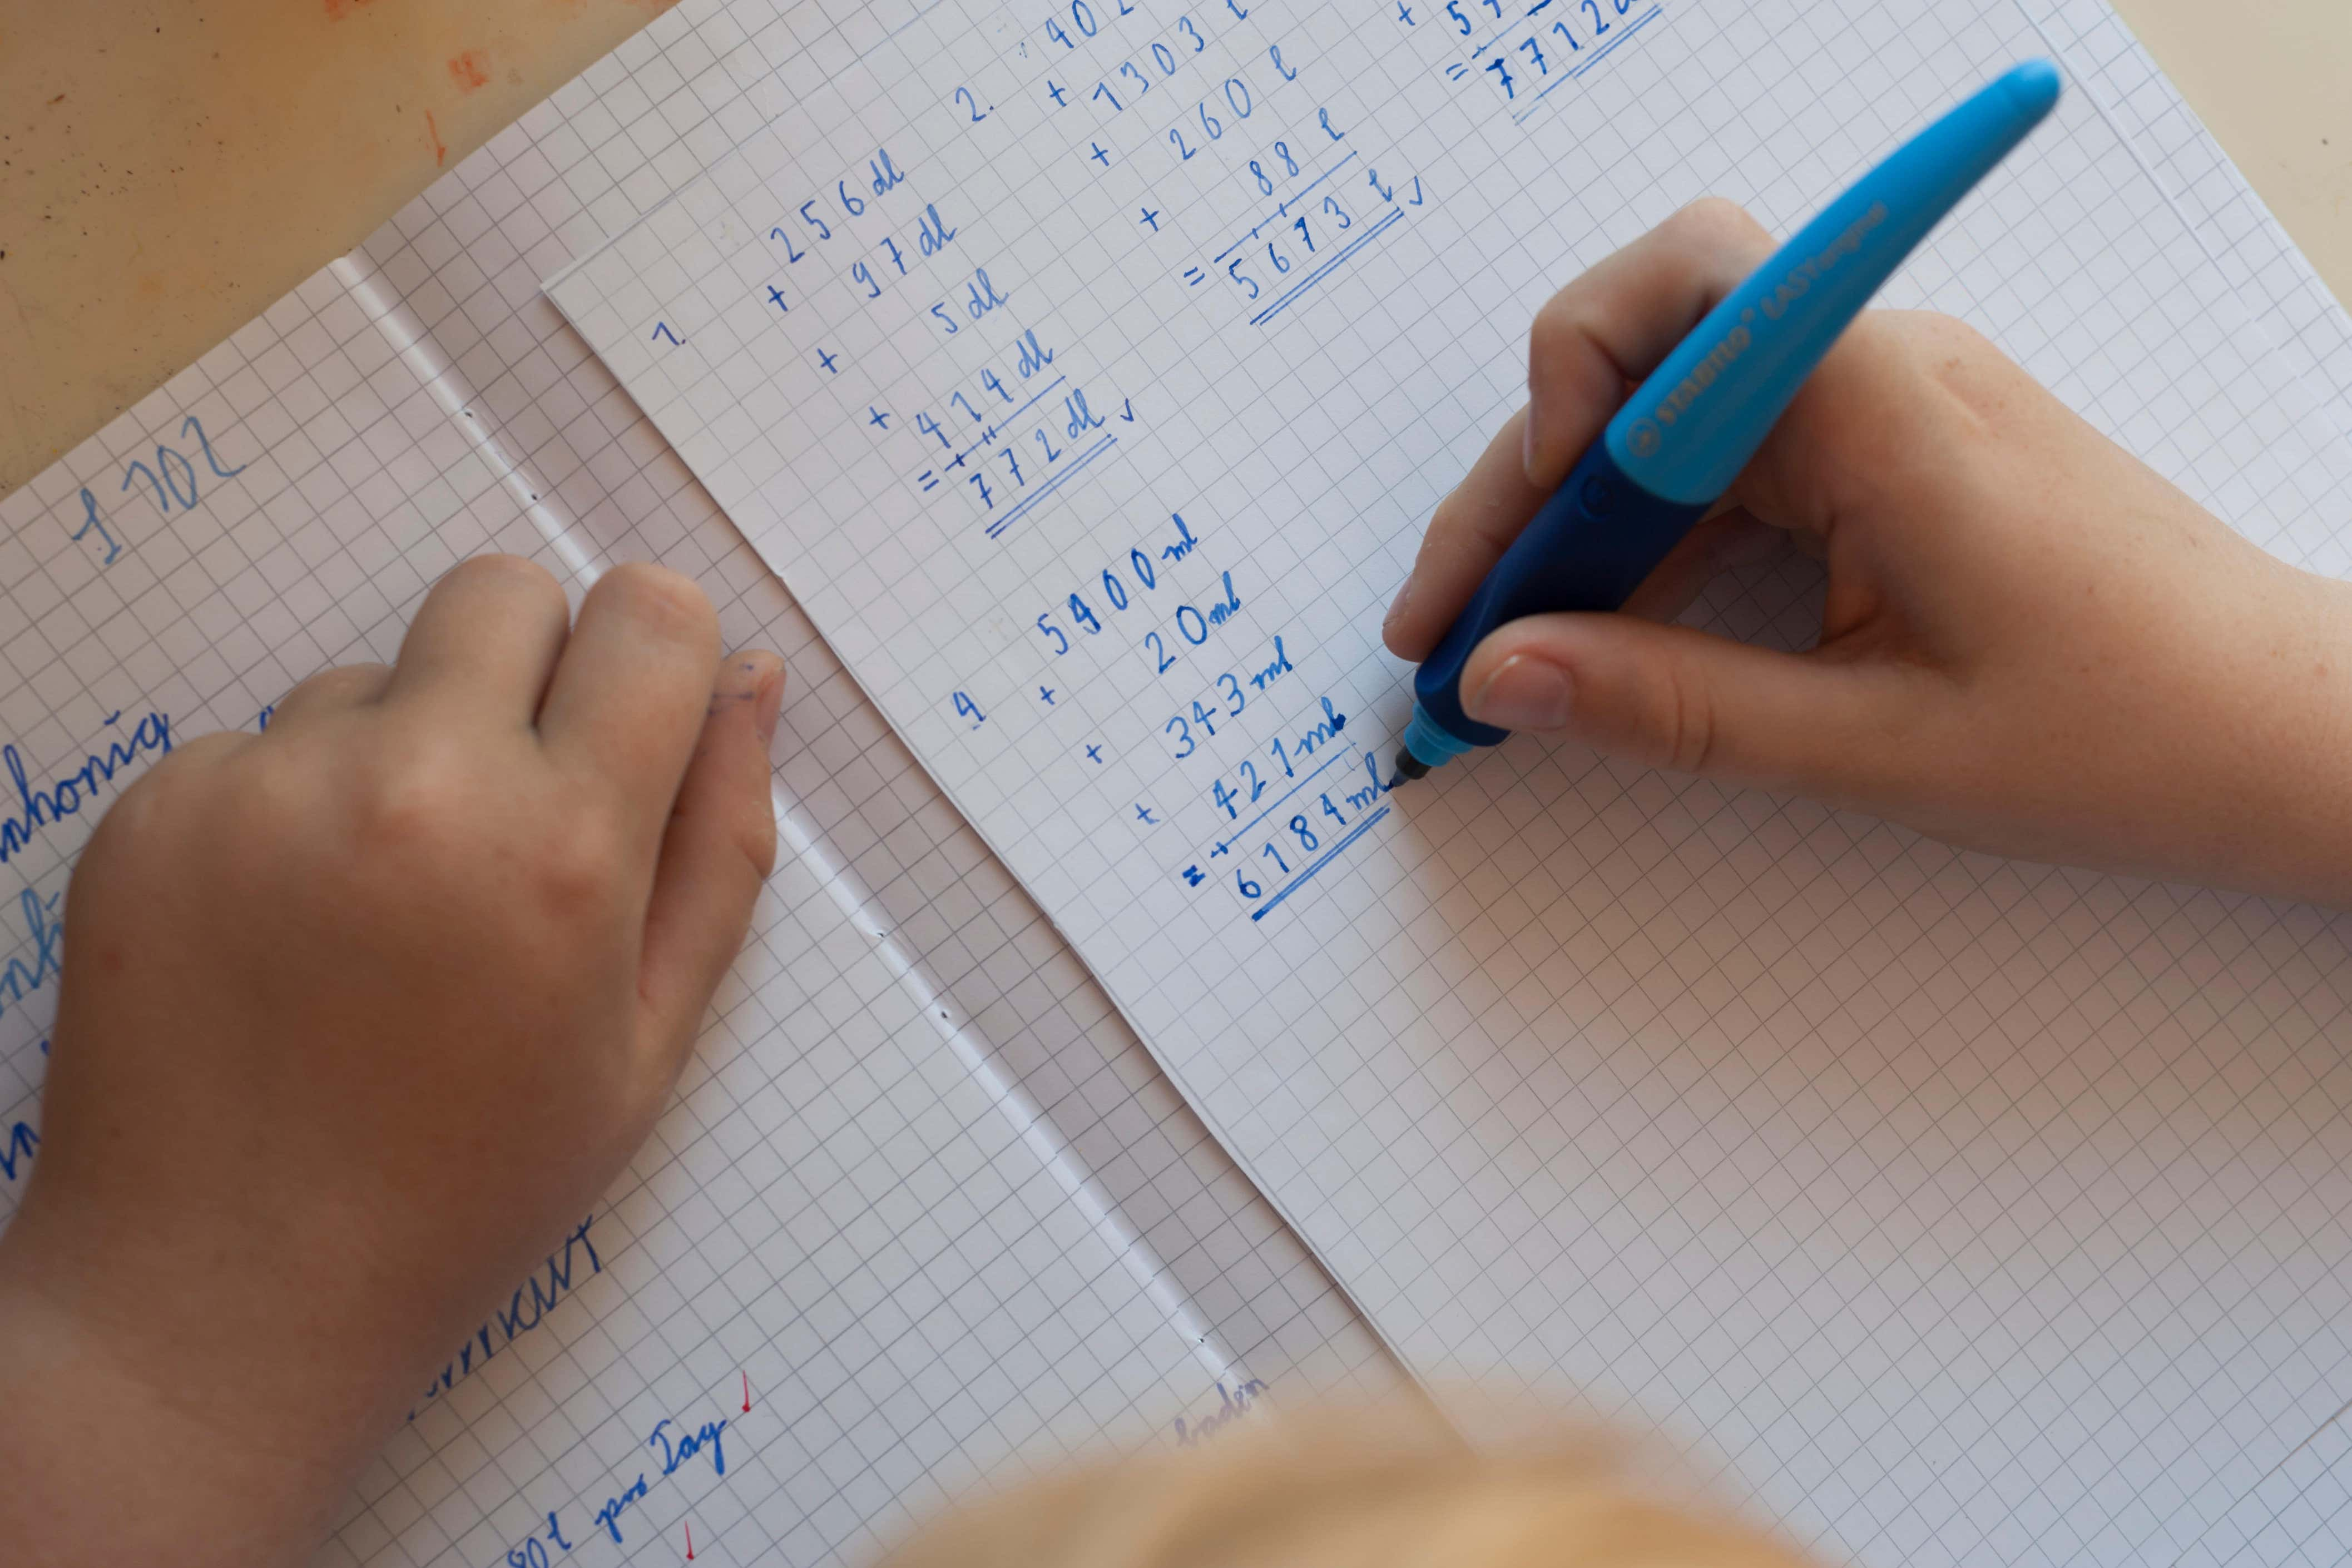 1 702
nhonig
80l pro Tag
baden
1.
256 dl
+ 97 dl
+ 5 dl
+ 414 dl
= 772 dl ✓
2.
402
+ 1303 l
+ 260 l
+ 88 l
= 5673 l ✓
+ 57
= 7712
4
5400 ml
+ 20 ml
+ 343 ml
+ 421 ml
= 6184 ml
STABILO® EASYoriginal